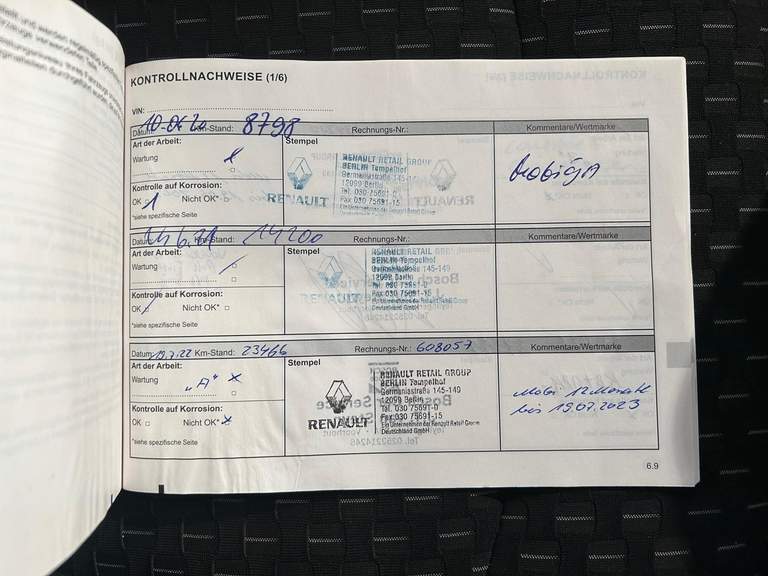 KONTROLLNACHWEISE (1/6)
VIN:
Datum: Km-Stand: 8798 Rechnungs-Nr.: Kommentare/Wertmarke
Art der Arbeit: Stempel
Wartung x
RENAULT RETAIL GROUP
BERLIN Tempelhof
Germaniastraße 145-149
12099 Berlin
Tel. 030 75691-0
Fax 030 75691-15
RENAULT
Kontrolle auf Korrosion:
OK Nicht OK*
*siehe spezifische Seite
Datum: Km-Stand: 14200 Rechnungs-Nr.: Kommentare/Wertmarke
Art der Arbeit: Stempel
Wartung
RENAULT RETAIL
BERLIN Tempelhof
Germaniastraße 145-149
12099 Berlin
Tel. 030 75691-0
Fax 030 75691-15
Deutschland GmbH
RENAULT
Kontrolle auf Korrosion:
OK Nicht OK*
*siehe spezifische Seite
Datum: 19.7.22 Km-Stand: 23466 Rechnungs-Nr.: 608057 Kommentare/Wertmarke
Art der Arbeit: Stempel
Wartung "A" x
RENAULT RETAIL GROUP
BERLIN Tempelhof
Germaniastrasse 145-149
12099 Berlin
Tel. 030 75691-0
Fax 030 75691-15
Ein Unternehmen der Renault Retail Group
Deutschland GmbH
RENAULT
Mobi 12 Monate
bis 19.07.2023
Kontrolle auf Korrosion:
OK Nicht OK* x
*siehe spezifische Seite
6.9